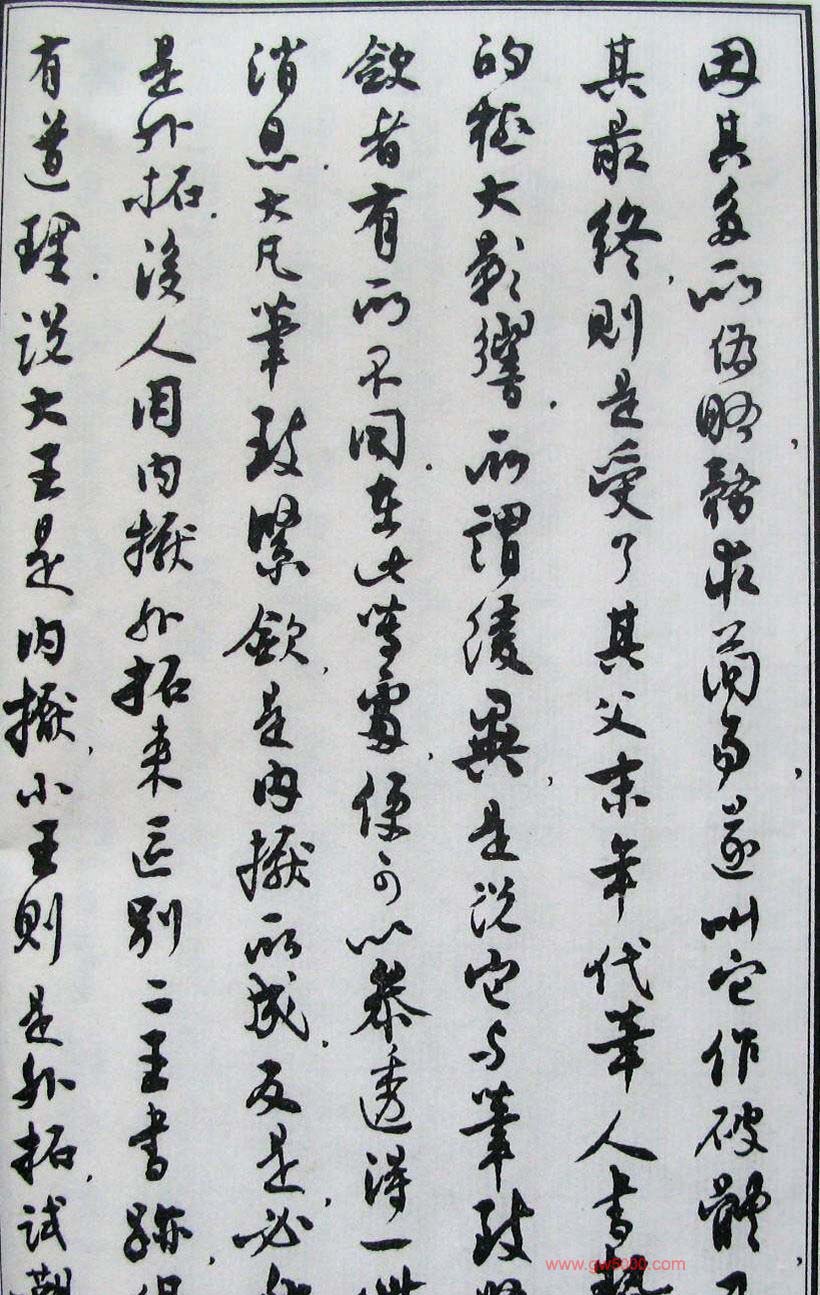 因其多所偽略，務求簡易，遂叫它作破體，
其最終，則是受了其父末年代筆人書勢
的極大影響。所謂緩異，是說它与筆致
斂者有所不同。在此等處，便可以參透得一些
消息。大凡筆致緊斂，是内擫所成。反是，必
是外拓。後人用内擫外拓來区别二王書跡，很
有道理。說大王是内擫，小王則是外拓，試觀
www.gw5000.com